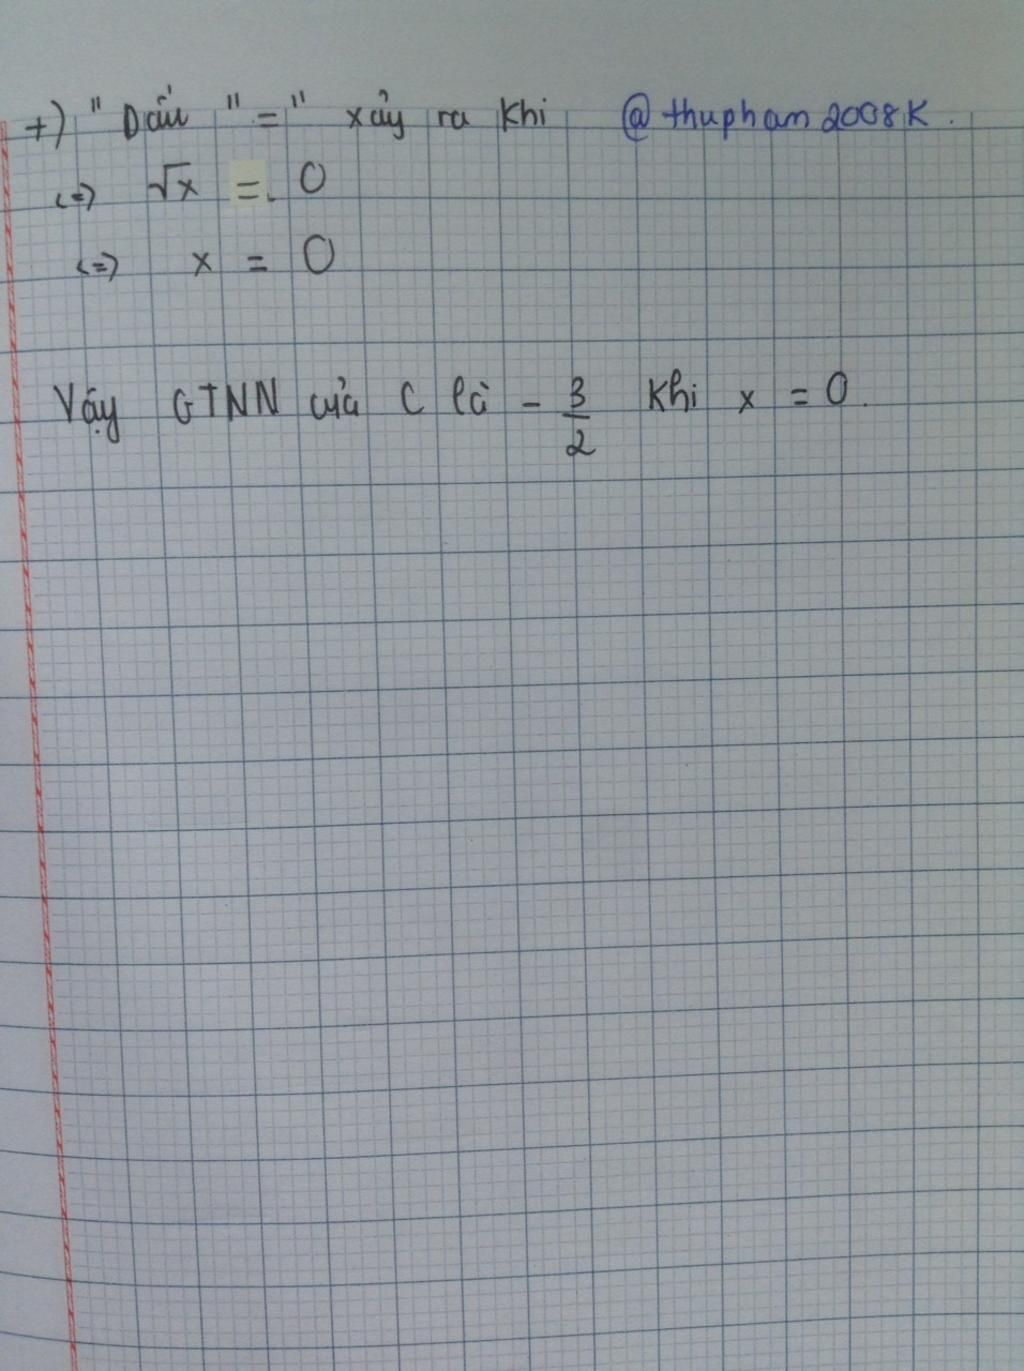 +) "Dấu "=" xảy ra khi @thupham2008K.
<=> √x = 0
<=> x = 0
Vậy GTNN của C là - 3/2 khi x = 0.